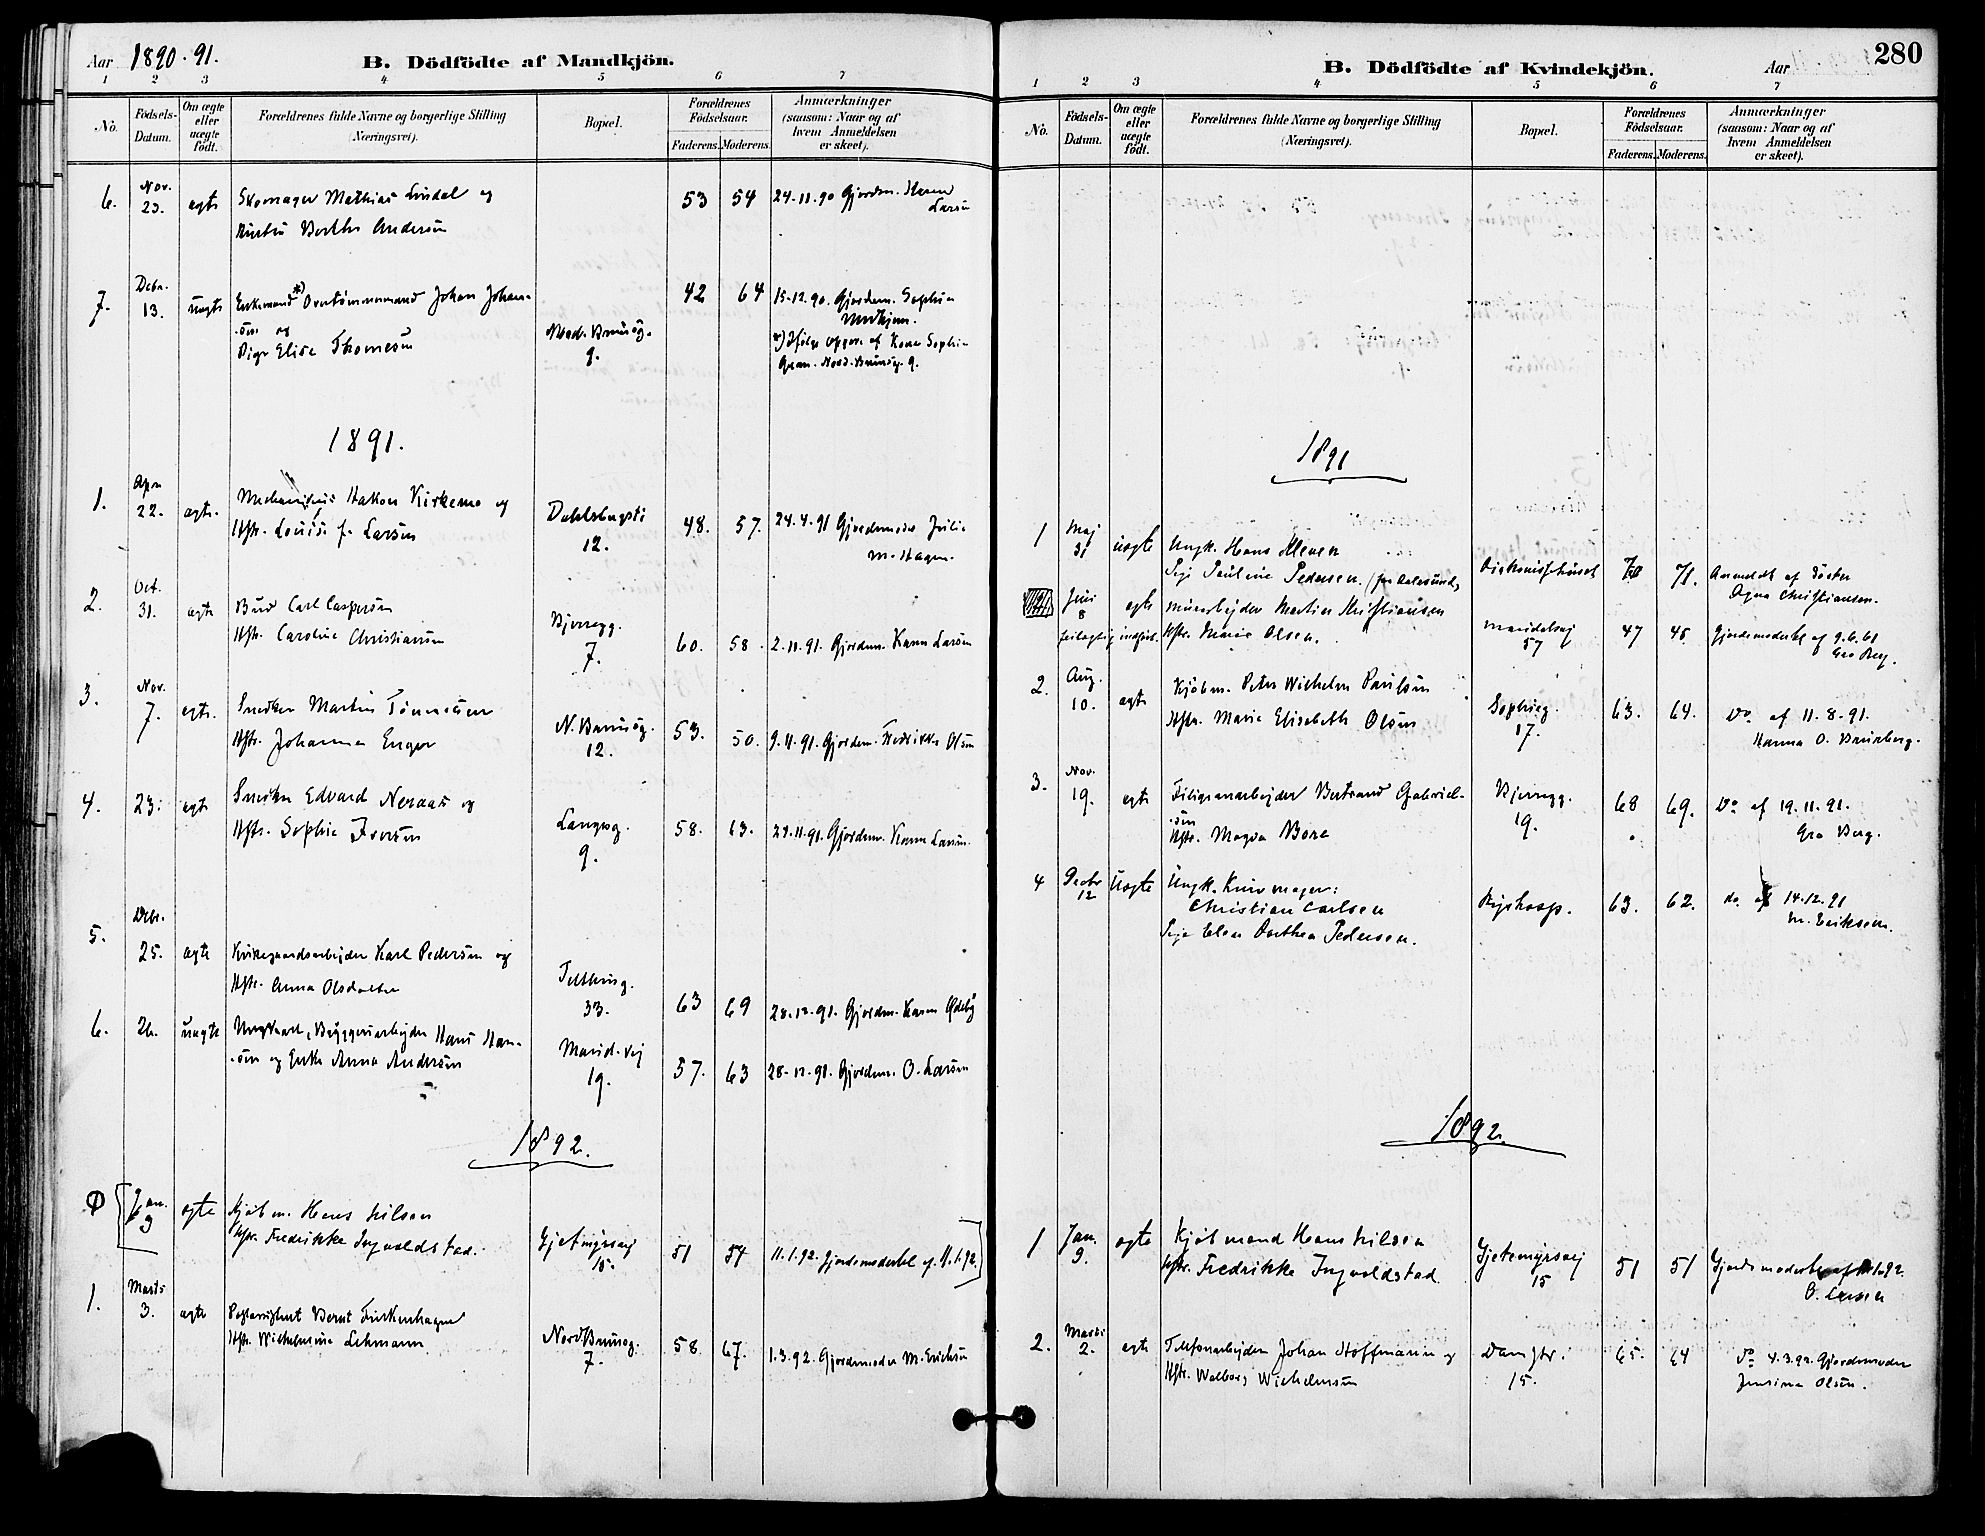 Aar 1890-91.
B. Dödfödte af Mandkjön.
1 2 3 4 5 6 7
No.
Födsels-Datum.
Om ægte eller uægte født.
Forældrenes fulde Navne og borgerlige Stilling (Næringsvei).
Bopæl.
Forældrenes Födselsaar.
Faderens. Moderens.
Anmærkninger (saasom: Naar og af hvem Anmeldelsen er skeet).
6. Nov. 23. ægte Skomager Mathias Lindal og 53 54 24-11-90 Gjordem. Karen Larsen
Hustru Berthe Andersen
7. Debr. 13. uægte Enkemand *) Overtømmermand Johan Johan- 42 64 15-12-90. Gjordem. Sophie
-sen og
Pige Elise Thomesen Nord. Brunsg. 9.
*) Ifølge opgave af Kone Sophie
Gran. Nord. Brunsg. 9.
1891.
1. Apr. 22. ægte. Hakon Kirkemo og
Hstr. Louise f. Larsen Dahlsbergsti 12. 48. 57. 24-4-91 Gjordemoder Julie
M. Hagen.
2. Oct. 31. ægte Bud Carl Caspersen
Hstr. Caroline Christiansen Bjerregg. 7. 60. 58. 2-11-91. Gjordem. Karen Larsen
3. Nov. 7. ægte. Snedker Martin Tønnesen
Hstr. Johanna Enger N. Brunsg. 12. 53. 50. 9-11-91. Gjordem. Fredrikke Olsen
4. 23. ægte Snedker Edvard Neraas og
Hstr. Sophie Iversen Langesg. 9. 58. 63. 24-11-91. Gjordem. Karen Larsen.
5. Debr. 25. ægte Kirkegaardsarbejder Karl Pedersen og
Hstr. Anna Olsdatter Telthusg. 33. 63 69 28-12-91. Gjordem. Karen Ødeby
6. 26. uægte Ungkarl, Bryggeriarbejder Hans Han-
-sen og Enke Anna Andersen Marid. vej 19. 57. 63 28-12-91. Gjordem. O. Larsen
1892.
1 Jan. 9 ægte Kjøbm. Hans Nilsen
Hstr. Fredrikke Ingvoldstad. Gjetmyrsvej 15. 51 54 11.1.92. Gjordemoderbel af 11.1.92.
1. Marts 3. ægte Bernt Finkenhagen
Hstr. Wilhelmine Lehmann Nord. Brunsg. 7. 58. 67. 1.3.92. Gjordemoder M. Eriksen
280
B. Dödfödte af Kvindekjön.
Aar
1 2 3 4 5 6 7
No.
Födsels-Datum.
Om ægte eller uægte födt.
Forældrenes fulde Navne og borgerlige Stilling (Næringsvei).
Bopæl.
Forældrenes Födselsaar.
Faderens. Moderens.
Anmærkninger (saasom: Naar og af hvem Anmeldelsen er skeet).
1891
1 Maj 31 uægte Ungk. Hans Kleven
Pige Pauline Pedersen. (fra Aalesund) Diakonissehuset 70 71. Anmeldt af Søster
Agna Christiansen.
Juni 8 ægte Murarbejder Martin Kristiansen
feilagtig indført. Hstr. Marie Olsen. Maridalsvej 57 47 45 Gjordemoderbel af 9.6.91
Gro Berg.
2. Aug. 10. ægte Kjøbm. Peter Wilhelm Paulsen
Hstr. Marie Elisabeth Olsen Sophieg. 17. 63. 64. Do af 11-8-91.
Hanna O. Brunberg.
3. Nov. 19. ægte Filigranarbejder Bertrand Gabriel-
-sen
Hstr. Magda Bore Bjerregg. 19. 68 69. Do af 19.11.91.
Gro Berg.
4 Decbr 12 Uægte Ungk. Kurvmager:
Christian Carlsen
Pige Elen Dorthea Pedersen. Rigshosp. 63. 62. do. af 14.12.91
M. Eriksen.
1892.
1 Jan. 9. ægte Kjøbmand Hans Nilsen
Hstr. Fredrikke Ingvoldstad. Gjetemyrsvej 15 51 51 Gjordemoderbel af 11.1.92.
O. Larsen
2. Marts 2. ægte Telefonarbejder Johan Hoffmann og
Hstr. Walborg Wilhelmsen Damstr. 15. 65. 64 Do 4.3.92. Gjordemoder
Jensine Olsen.